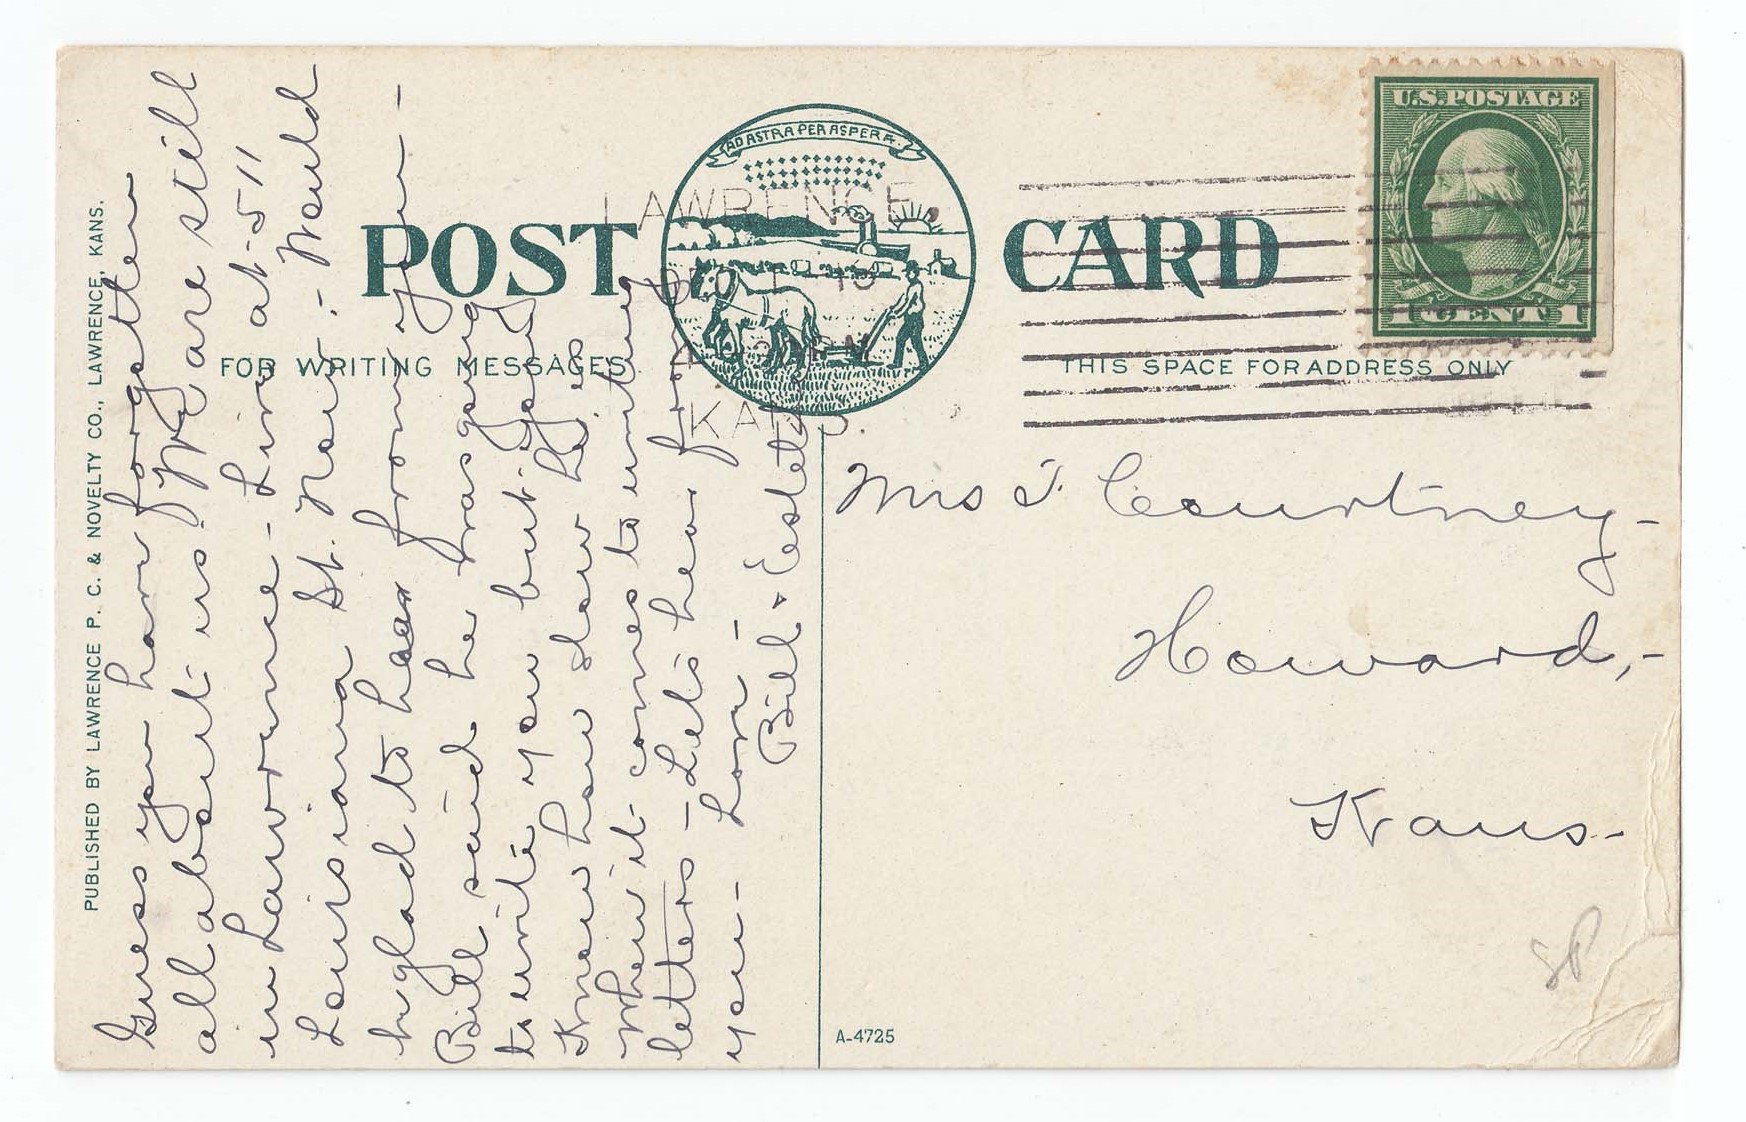 PUBLISHED BY LAWRENCE P. C. & NOVELTY CO., LAWRENCE, KANS.
POST CARD
AD ASTRA PER ASPERA
FOR WRITING MESSAGES
THIS SPACE FOR ADDRESS ONLY
LAWRENCE,
1 13
PM
KANS.
U.S. POSTAGE
1 CENT 1
Guess you have forgotten
all about us. We are still
in Lawrence - Live at 511
Louisiana St. Now - Would
be glad to hear from you -
Bill said he was going
to write you but you
know how slow he is
when it comes to writing
letters - Let's hear from
you - Love -
Bill & Estella
Mrs T. Courtney -
Howard, -
Kans -
A-4725
SP